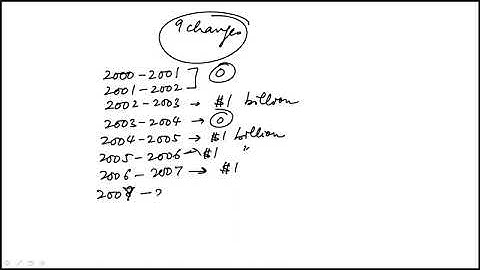 9 changes
2000 - 2001 ] 0
2001 - 2002
2002 - 2003 → $1 billion
2003 - 2004 → 0
2004 - 2005 → $1 billion
2005 - 2006 → $1 "
2006 - 2007 → $1
2007 -